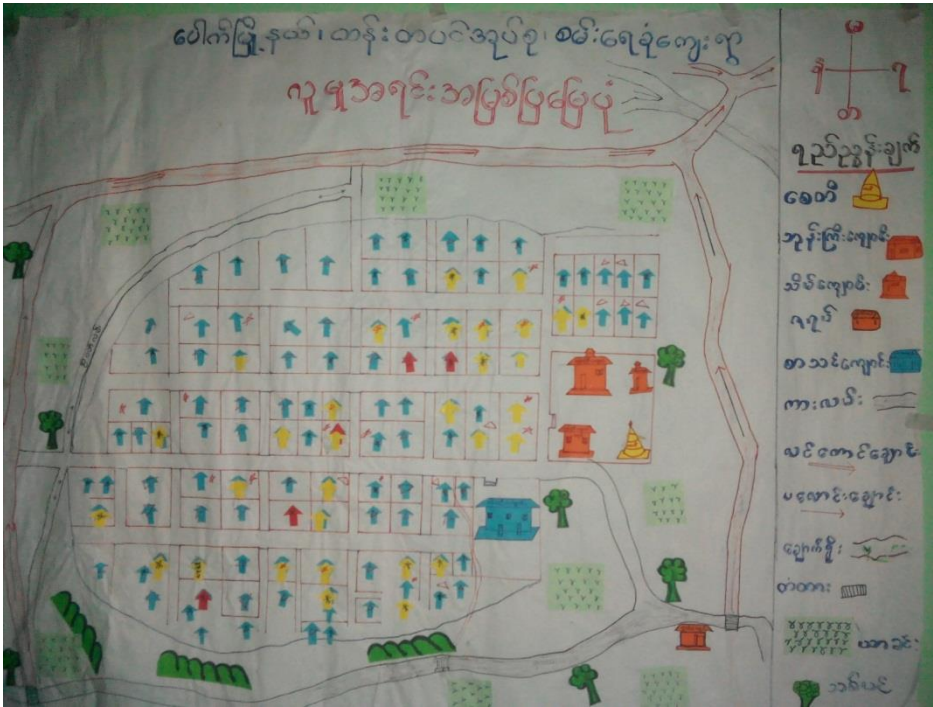 ပေါက်မြို့နယ်၊ တန်းတပင်အုပ်စု၊ စမ်းရေခုံကျေးရွာ
လူမှုအရင်းအမြစ်ပြမြေပုံ
မ
န
ရ
တ
ရည်ညွှန်းချက်
စေတီ
ဘုန်းကြီးကျောင်း
သိမ်ကျောင်း
ဇရပ်
စာသင်ကျောင်း
ကားလမ်း
လင်တောင်ချောင်း
ပလောင်းချောင်း
ချောက်ရိုး
တံတား
ယာခင်း
သစ်ပင်